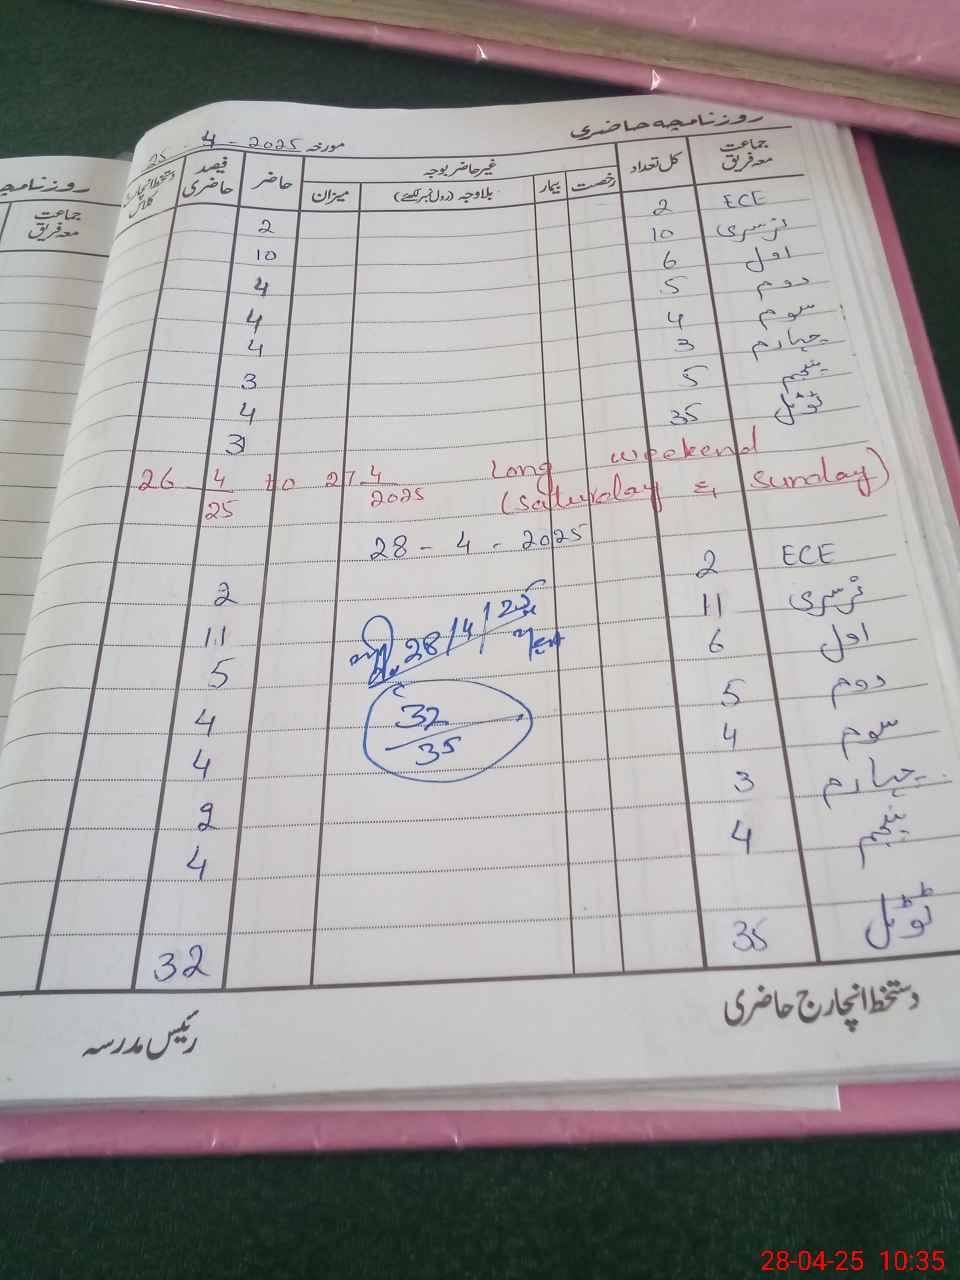 روزنامچہ حاضری
مورخہ 25 - 4 - 2025
جماعت معہ فریق کل تعداد غیر حاضر بوجہ حاضر فیصد حاضری
رخصت بیمار بلاوجہ (رول نمبر لکھئے) میزان
ECE 2 2
نرسری 10 10
اول 6 4
دوم 5 4
سوم 4 4
چہارم 3 3
پنجم 5 4
ٹوٹل 35 31
26 4/25 to 27 4/2025 Long weekend
(Saturday & Sunday)
28 - 4 - 2025
ECE 2 2
نرسری 11 11
اول 6 5
28/4/25
دوم 5 4
32/35
سوم 4 4
چہارم 3 2
پنجم 4 4
ٹوٹل 35 32
دستخط انچارج حاضری رئیس مدرسہ
جماعت
معہ فریق
28-04-25 10:35